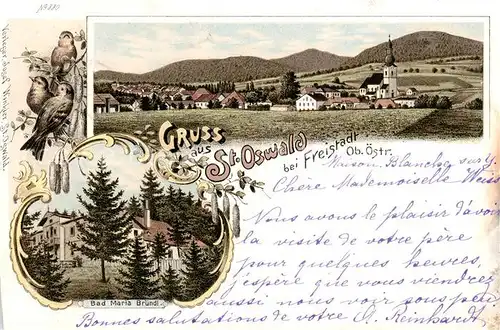 No 880
GRUSS
aus
St. Oswald
bei Freistadt
Ob. Östr.
Maison Blanche
Chère Mademoiselle Weiss
Nous avons le plaisir d'avoir
la visite de votre père
pour quelques heures,
j'espère que vous viendrez
aussi nous voir sous peu
Bonnes salutations de votre G. Reinhardt
Bad Maria Bründl.